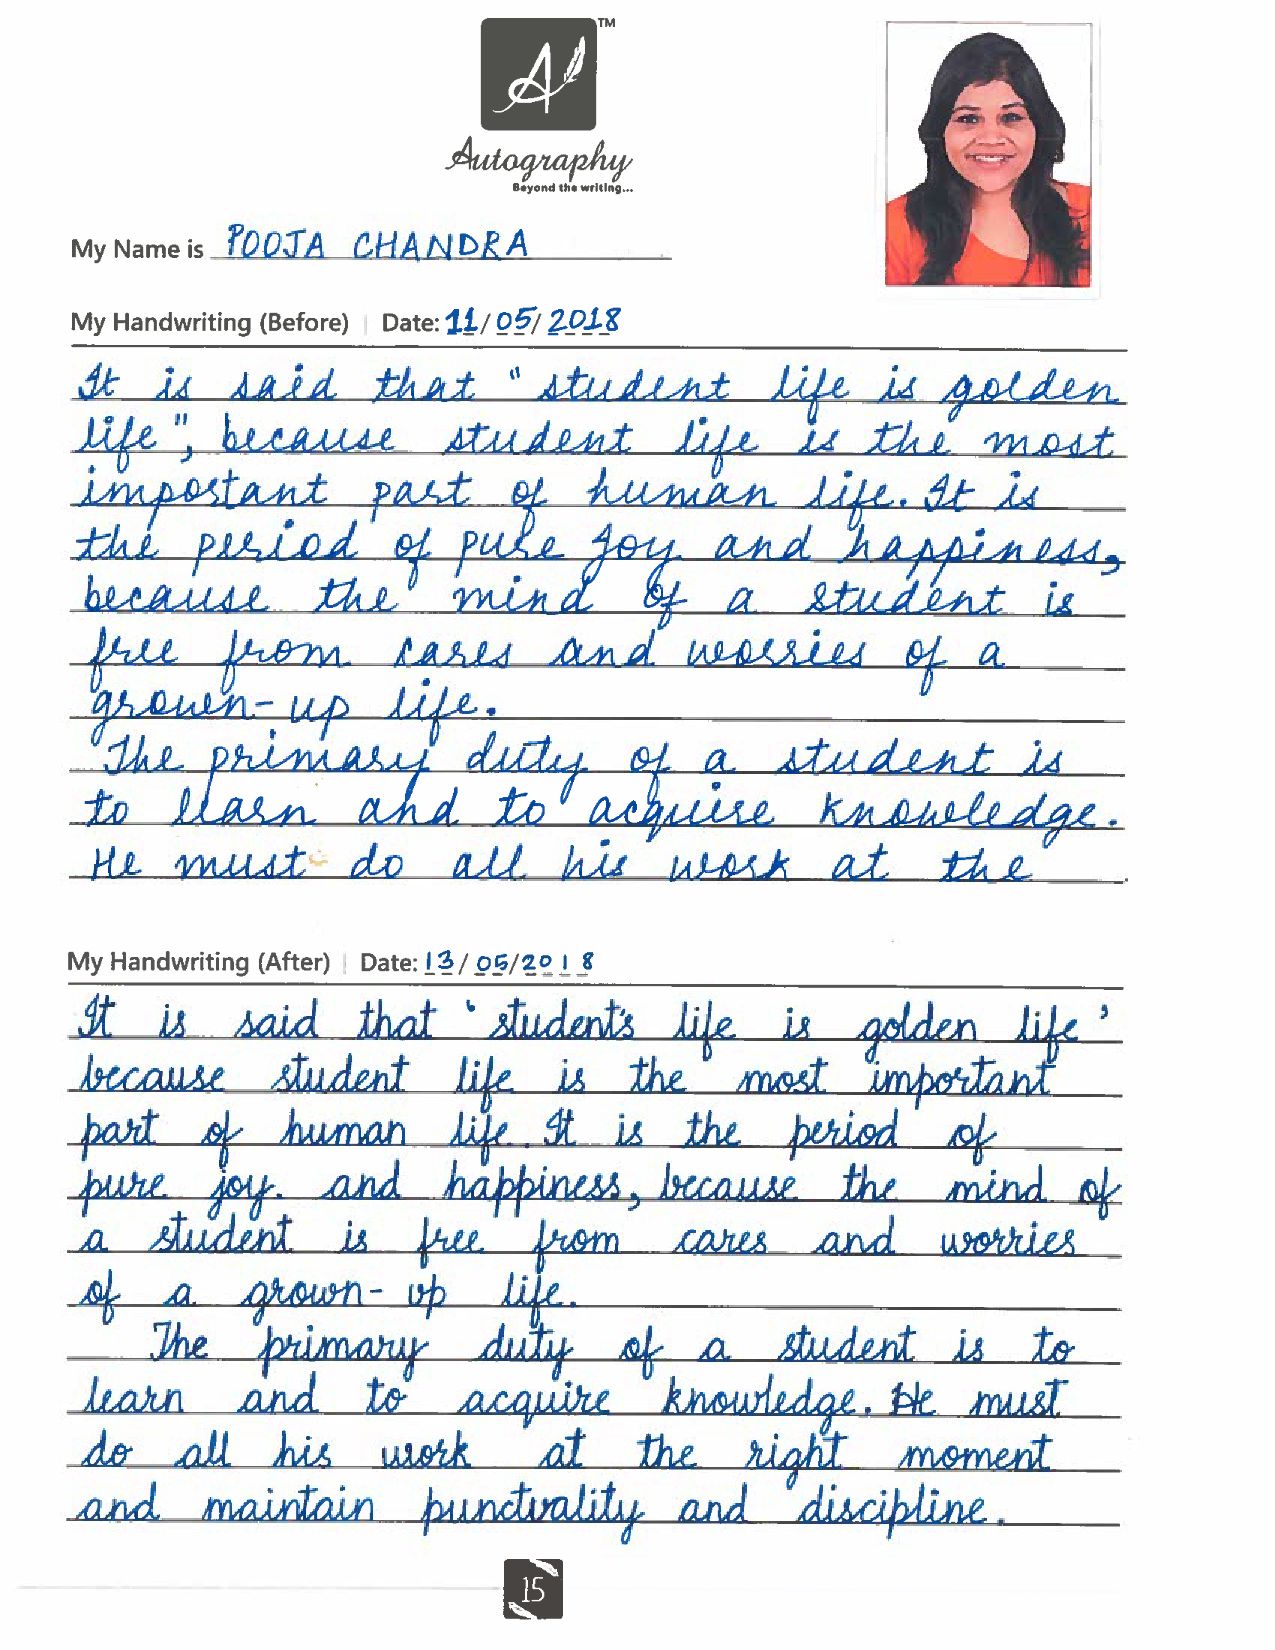 A
TM
Autography
Beyond the writing...
My Name is POOJA CHANDRA
My Handwriting (Before) | Date: 11/05/2018
It is said that "student life is golden
life", because student life is the most
important part of human life. It is
the period of pure joy and happiness,
because the mind of a student is
free from cares and worries of a
grown-up life.
The primary duty of a student is
to learn and to acquire knowledge.
He must do all his work at the
My Handwriting (After) | Date: 13/05/2018
It is said that 'student's life is golden life'
because student life is the most important
part of human life. It is the period of
pure joy. and happiness, because the mind of
a student is free from cares and worries
of a grown-up life.
The primary duty of a student is to
learn and to acquire knowledge. He must
do all his work at the right moment
and maintain punctuality and discipline.
15